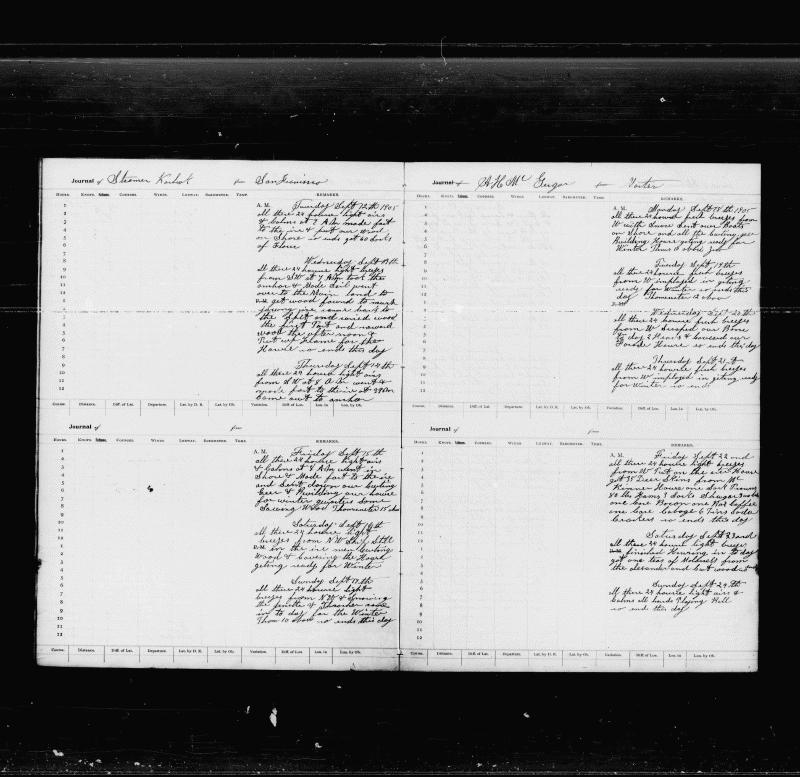 Journal of Steamer Karluk from San Francisco
HOURS. KNOTS. COURSES. WINDS. LEEWAY. BAROMETER. TEMP. REMARKS.
A. M. Tuesday Sept 12th 1905
all these 24 hours light airs
& Calms at 7 A.M. made fast
to the ice & put our wood
on Shore so ends got 60 sacks
of Flour
Wednesday Sept 13th
all these 24 hours light breezes
from SW at 7 A.M. took the
anchor & Made Sail went
over to the Main land to
P. M. get wood found to much
young ice came back to
the Split and sawed wood
the first Part and
wood the after noon &
Put up Frame for the
House so ends this day
Thursday Sept 14th
all these 24 hours light airs
from SW at 8 A.M. went &
made fast to the ice at 9
Came out to anchor
COURSE. DISTANCE. DIFF. OF LAT. DEPARTURE. LAT. BY D. R. LAT. BY OB. VARIATION. DIFF. OF LON. LON. IN LON. BY OB.
Journal of from
HOURS. KNOTS. COURSES. WINDS. LEEWAY. BAROMETER. TEMP. REMARKS.
A. M. Friday Sept 15th
all these 24 hours light airs
& Calms at 8 A.M. went in
Shore & Made fast to the ice
and
Geer & Building our house
for winter quarters some
Sawing Wood Thomometer 15
Saturday Sept 16th
all these 24 hours light
breezes from NW Ship Still
P. M. in the ice men
Wood & Covering the House
geting ready for Winter
Sunday Sept 17th
all these 24 hours light
breezes from NW & Snowing
the &
in to day for the Winter
Thom 10 so ends this day
COURSE. DISTANCE. DIFF. OF LAT. DEPARTURE. LAT. BY D. R. LAT. BY OB. VARIATION. DIFF. OF LON. LON. IN LON. BY OB.
Journal of A H Mc Gregor
HOURS. KNOTS. COURSES. WINDS. LEEWAY. BAROMETER. TEMP. REMARKS.
A. M. Monday Sept 18th 1905
all these 24 hours fresh breezes from
W with Snow Sent our Boats
on Shore and all the
Building House geting ready for
Winter Thom 10
Tuesday Sept 19th
all these 24 hours fresh breezes
from W imployed in geting
ready for Winter so ends this
day Thomometer 12
P. M. Wednesday Sept 20th
all these 24 hours fresh breezes
from W Scraped our Bone
to day 2 Heads &
House so ends this day
Thursday Sept 21st
all these 24 hours fresh breezes
from W imployed in geting ready
for Winter so ends
COURSE. DISTANCE. DIFF. OF LAT. DEPARTURE. LAT. BY D. R. LAT. BY OB. VARIATION. DIFF. OF LON. LON. IN LON. BY OB.
Journal of from
HOURS. KNOTS. COURSES. WINDS. LEEWAY. BAROMETER. TEMP. REMARKS.
A. M. Friday Sept 22nd
all these 24 hours light breezes
from W Put on the House
got 35 Deer Skins from Mc
House one Sack
80 lbs Hams 3 Sacks Shugar
one case Bacon one
one case Cabage 6 Tins Soda
Crackers so ends this day
Saturday Sept 23rd
all these 24 hours light breezes
P. M. finished Housing in to day
got one of Molases from
the Alexander and
Sunday Sept 24th
all these 24 hours light airs &
calms all hands Playing Ball
so ends this day
COURSE. DISTANCE. DIFF. OF LAT. DEPARTURE. LAT. BY D. R. LAT. BY OB. VARIATION. DIFF. OF LON. LON. IN LON. BY OB.